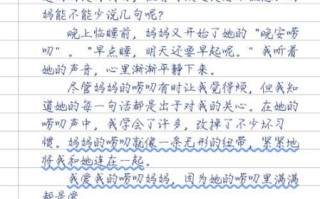 妈能不能少说几句呢?
晚上临睡前,妈妈又开始了她的“晚安唠
叨”。“早点睡,明天还要早起呢。”我听着
她的声音,心里渐渐平静下来。
尽管妈妈的唠叨有时让我觉得烦,但我知
道她的每一句话都是出于对我的关心。在她的
唠叨声中,我学会了许多,改掉了不少坏习
惯。妈妈的唠叨就像一条无形的纽带,紧紧地
将我和她连在一起。
我爱我的唠叨妈妈,因为她的唠叨里满满
都是爱